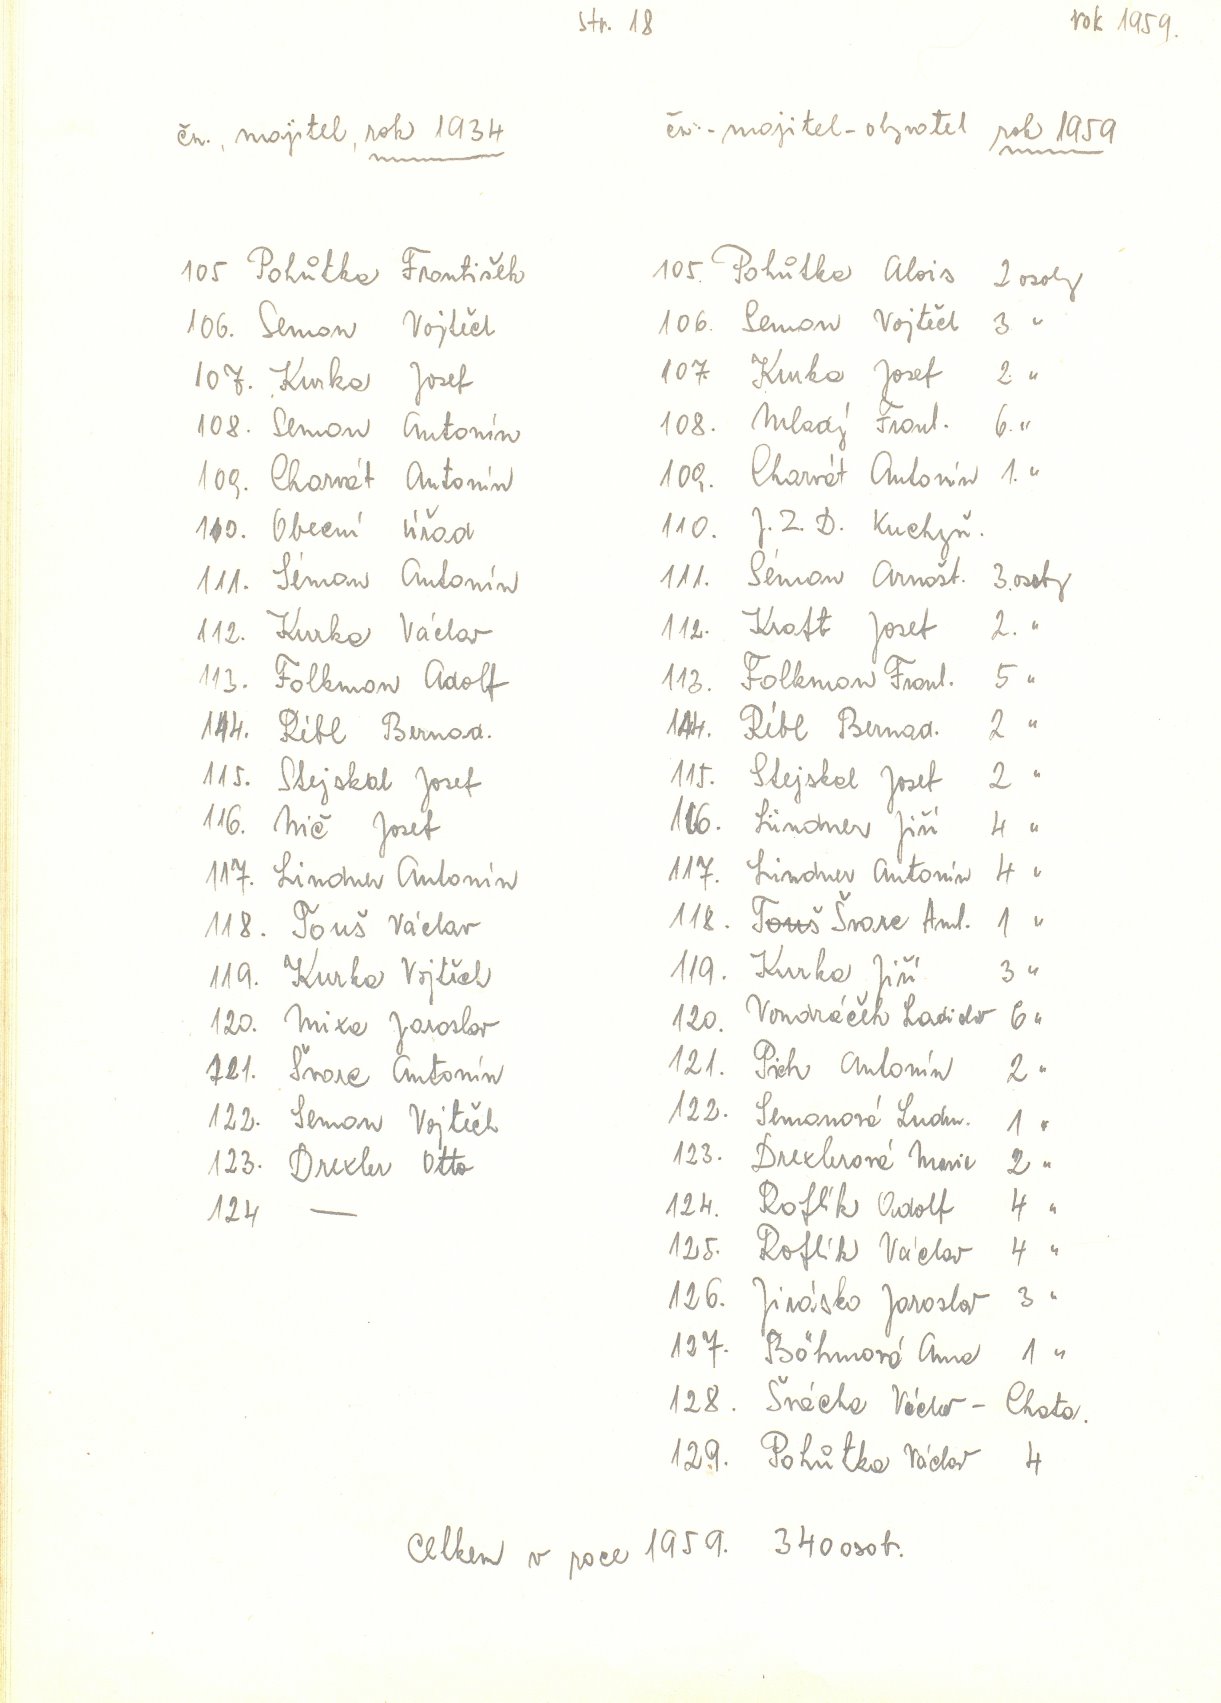 str. 18 rok 1959.
čn., majitel, rok 1934
čn. - majitel - obyvatel rok 1959
105 Pohůtka František
106. Seman Vojtěch
107. Kurka Josef
108. Seman Antonín
109. Charvát Antonín
110. Obecní úřad
111. Séman Antonín
112. Kurka Václav
113. Folkman Adolf
114. Ribl Bernad.
115. Stejskal Josef
116. Mič Josef
117. Lindner Antonín
118. Touš Václav
119. Kurka Vojtěch
120. Mixa Jaroslav
121. Švarc Antonín
122. Seman Vojtěch
123. Drexler Otto
124 —
105. Pohůtka Alois 2 osoby
106. Seman Vojtěch 3 "
107 Kurka Josef 2 "
108. Mladý Frant. 6. "
109. Charvát Antonín 1. "
110. J. Z. D. Kuchyň.
111. Séman Arnošt. 3. osoby
112. Kraft Josef 2. "
113. Folkman Frant. 5 "
114. Ribl Bernad. 2 "
115. Stejskal Josef 2 "
116. Lindner Jiří 4 "
117. Lindner Antonín 4 "
118. Touš Švarc Ant. 1 "
119. Kurka Jiří 3 "
120. Vondráček Ladislav 6 "
121. Pich Antonín 2 "
122. Semanová Ludm. 1 "
123. Drexlerová Marie 2 "
124. Roflík Adolf 4 "
125. Roflík Václav 4 "
126. Jirásko Jaroslav 3 "
127. Böhmová Anna 1 "
128. Švácha Václav - Chata.
129. Pohůtka Václav 4
Celkem v roce 1959. 340 osob.